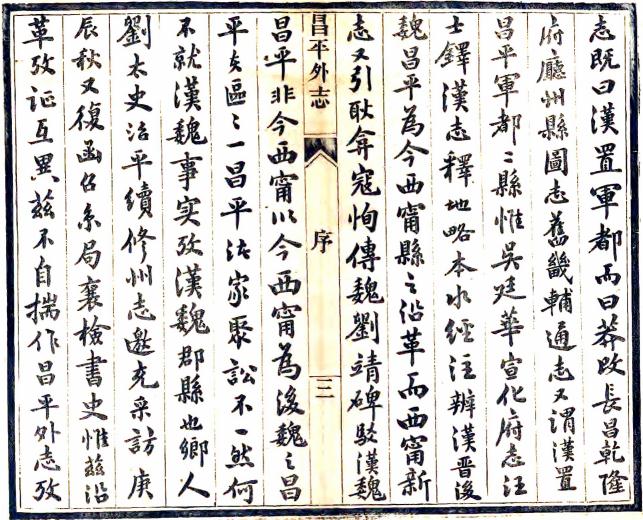 志既曰漢置軍都而曰莽改長昌乾隆
府廳州縣圖志舊畿輔通志又謂漢置
昌平軍都二縣惟吳廷華宣化府志汪
士鐸漢志釋地略本水經注辨漢晉後
魏昌平為今西甯縣之沿革而西甯新
志又引耿弇寇恂傳魏劉靖碑駁漢魏
昌平外志
序
三
昌平非今西甯以今西甯為後魏之昌
平夫區區一昌平諸家聚訟不一然何
不就漢魏事實攷漢魏郡縣也鄉人
劉太史治平續修州志邀充采訪庚
辰秋又復函召系局襄檢書史惟茲沿
革攷証互異茲不自揣作昌平外志攷